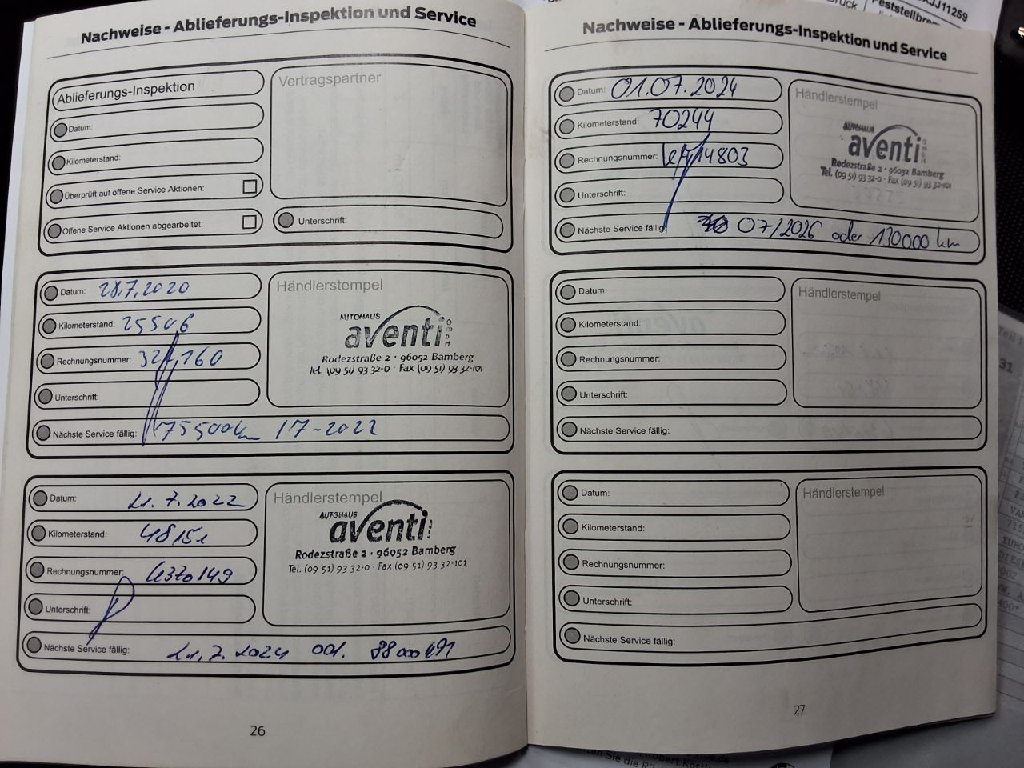 Nachweise - Ablieferungs-Inspektion und Service
Ablieferungs-Inspektion
Vertragspartner
Datum:
Kilometerstand:
Überprüft auf offene Service Aktionen:
Offene Service Aktionen abgearbeitet:
Unterschrift:
Datum: 28.7.2020
Händlerstempel
Kilometerstand: 25506
AUTOHAUS
aventi
Rodezstraße 2 · 96052 Bamberg
Tel. (09 51) 93 32-0 · Fax (09 51) 93 32-101
Rechnungsnummer:
Unterschrift:
Nächste Service fällig: 75500km 17-2022
Datum: 21.7.2022
Händlerstempel
Kilometerstand: 48151
AUTOHAUS
aventi
Rodezstraße 2 · 96052 Bamberg
Tel. (09 51) 93 32-0 · Fax (09 51) 93 32-101
Rechnungsnummer:
Unterschrift:
Nächste Service fällig: 21.7.2024 od. 88000 km
26
Nachweise - Ablieferungs-Inspektion und Service
Datum: 01.07.2024
Händlerstempel
Kilometerstand: 70244
AUTOHAUS
aventi
Rodezstraße 2 · 96052 Bamberg
Tel. (09 51) 93 32-0 · Fax (09 51) 93 32-101
Rechnungsnummer:
Unterschrift:
Nächste Service fällig: 07/2026 oder 110000 km
Datum:
Händlerstempel
Kilometerstand:
Rechnungsnummer:
Unterschrift:
Nächste Service fällig:
Datum:
Händlerstempel
Kilometerstand:
Rechnungsnummer:
Unterschrift:
Nächste Service fällig:
27